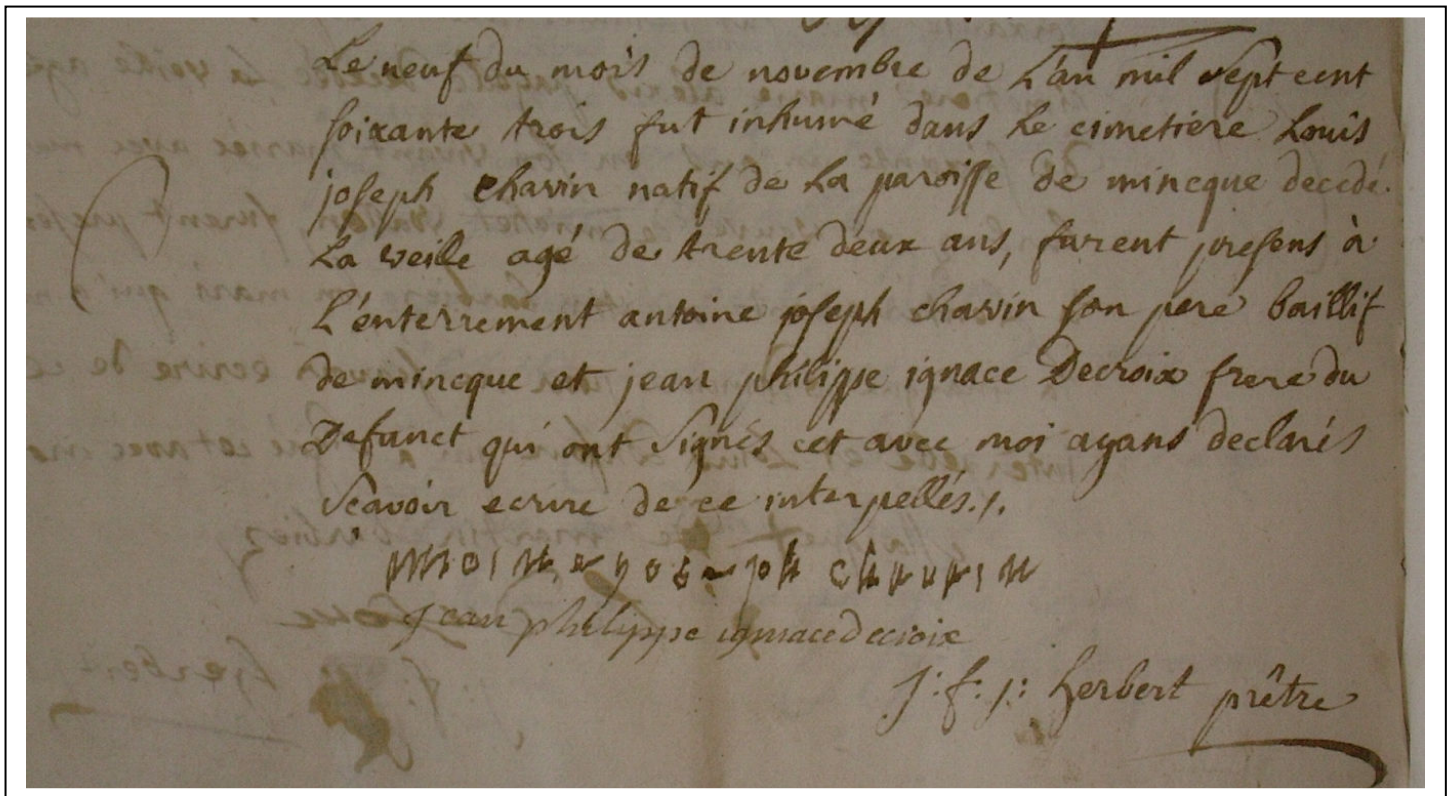 Le neuf du mois de novembre de L'an mil sept cent
soixante trois fut inhumé dans Le cimetiere Louis
joseph chavin natif de La paroisse de mincque decedé
La veille agé de trente deux ans, furent presens à
L'enterrement antoine joseph chavin son pere baillif
de mincque et jean philippe ignace Decroix frere du
Defunct qui ont signés cet avec moi ayans declarés
scavoir ecrire de ce interpellés./.
joseph
jean philippe ignace decroix
j: f: j: herbert prêtre